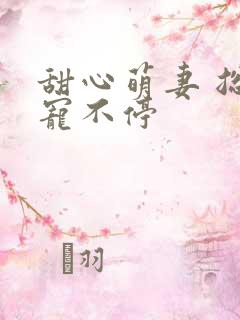 甜心萌妻
宠不停
羽